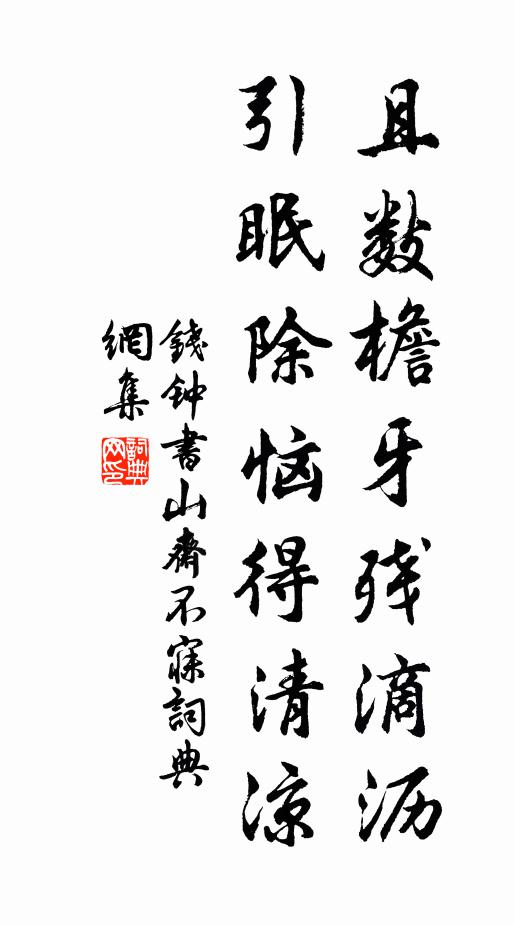 且数檐牙残滴沥
引眠除恼得清凉
錢钟書山齋不寐詞典
網集
詞典
网印